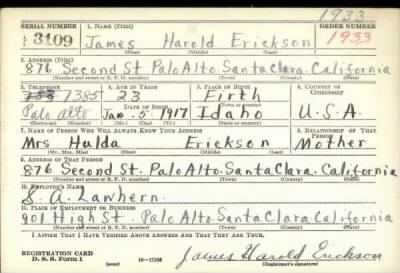 1933
SERIAL NUMBER 1. NAME (Print) ORDER NUMBER
3109 James Harold Erickson 1933
(First) (Middle) (Last)
2. ADDRESS (Print)
876 Second St Palo Alto. Santa Clara. California
(Number and street or R. F. D. number) (Town) (County) (State)
3. TELEPHONE 4. AGE IN YEARS 5. PLACE OF BIRTH 6. COUNTRY OF CITIZENSHIP
7385 23 Firth
Palo Alto DATE OF BIRTH (Town or county)
Jan. 5 1917 Idaho U.S.A.
(Exchange) (Number) (Mo.) (Day) (Yr.) (State or country)
7. NAME OF PERSON WHO WILL ALWAYS KNOW YOUR ADDRESS 8. RELATIONSHIP OF THAT PERSON
Mrs Hulda Erickson Mother
(Mr., Mrs., Miss) (First) (Middle) (Last)
9. ADDRESS OF THAT PERSON
876 Second St. Palo Alto. Santa Clara. California
(Number and street or R. F. D. number) (Town) (County) (State)
10. EMPLOYER'S NAME
S. A. Lawhern.
11. PLACE OF EMPLOYMENT OR BUSINESS
901 High St. Palo Alto. Santa Clara. California
(Number and street or R. F. D. number) (Town) (County) (State)
I AFFIRM THAT I HAVE VERIFIED ABOVE ANSWERS AND THAT THEY ARE TRUE.
REGISTRATION CARD
D. S. S. Form 1 (over) 16-17105 James Harold Erickson
(Registrant's signature)